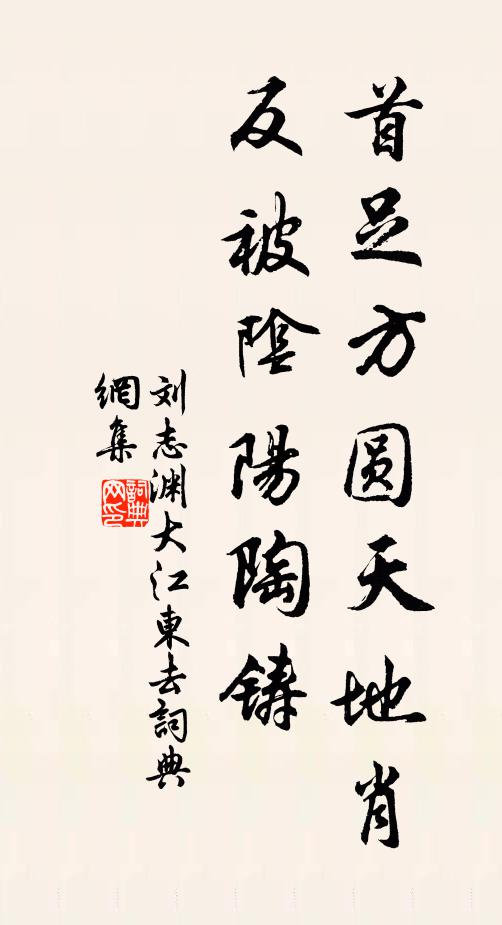 首足方圆天地肖
反被陰陽陶鑄
刘志渊大江東去詞典
網集
詞典
网印